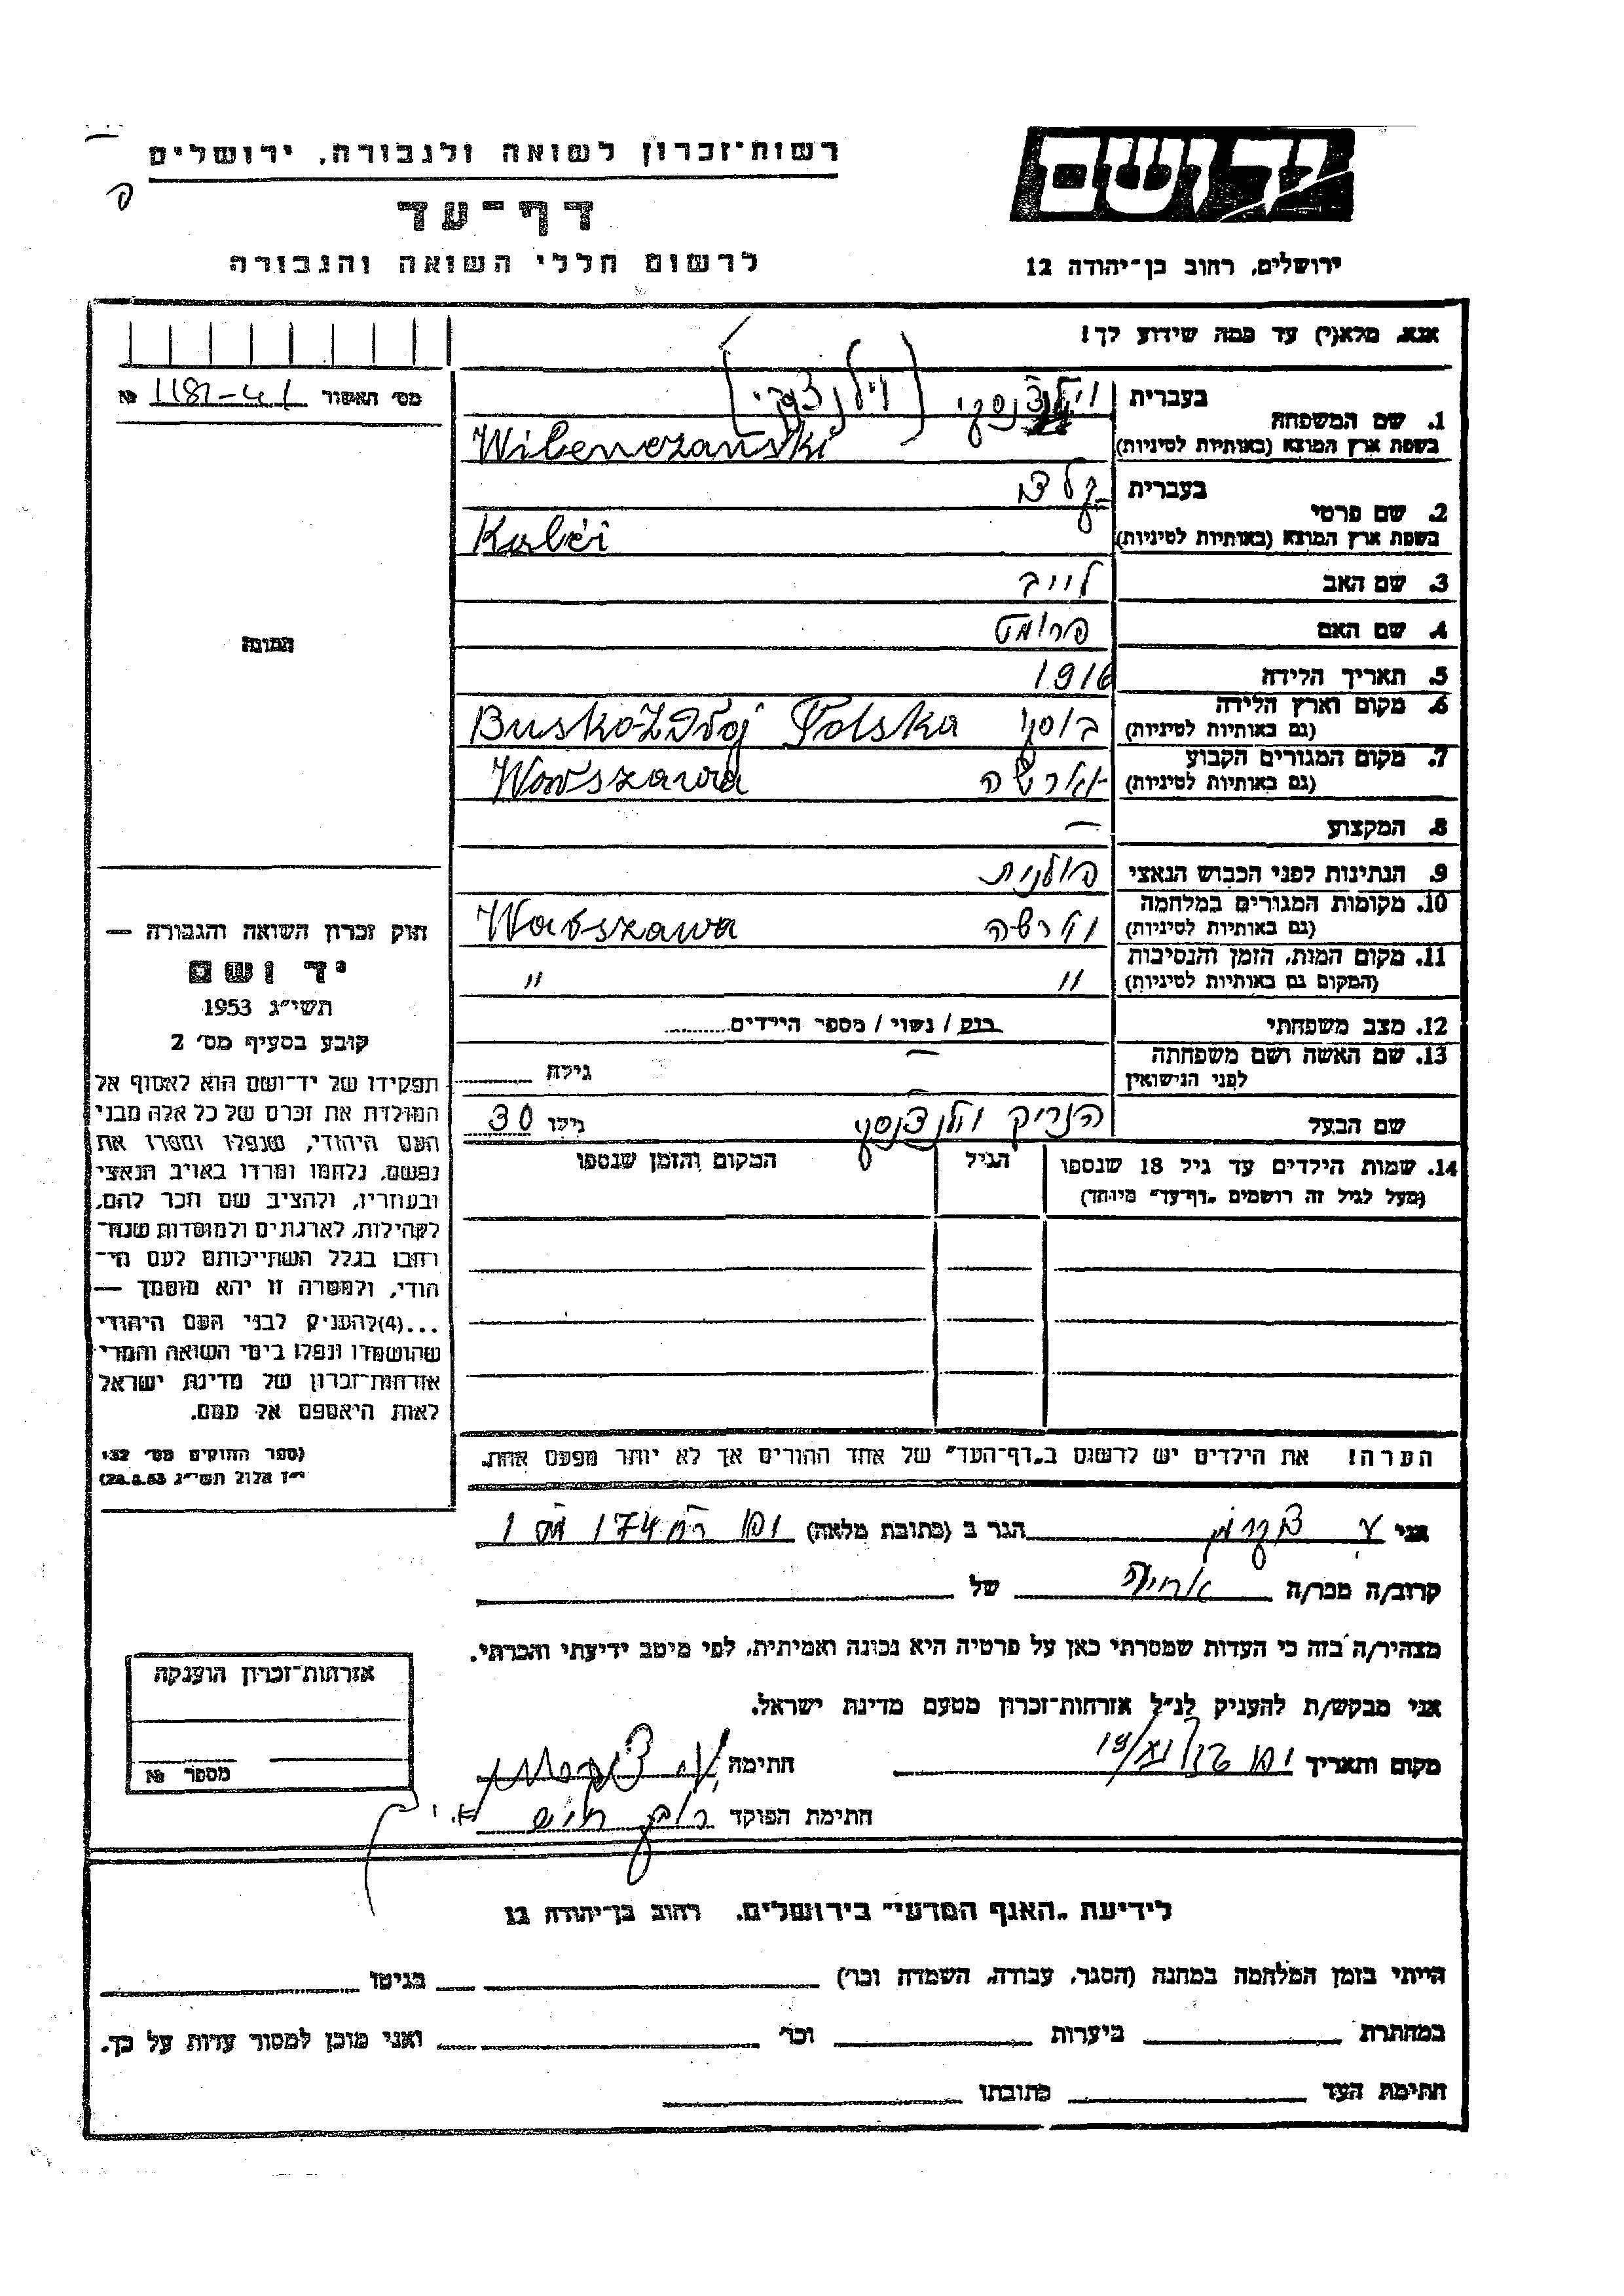 רשות־זכרון לשואה ולגבורה, ירושלים
יד ושם
דף־עד
לרשום חללי השואה והגבורה
ירושלים, רחוב בן־יהודה 12
אנא, מלא(י) עד כמה שידוע לך!
מס׳ האשור 1181-41 №
1. שם המשפחה
בעברית
בשפת ארץ המוצא (באותיות לטיניות)
Wilenczanski
2. שם פרטי
בעברית
בשפת ארץ המוצא (באותיות לטיניות)
3. שם האב לייב
4. שם האם פרומט
5. תאריך הלידה 1916
6. מקום וארץ הלידה
(גם באותיות לטיניות)
Busko-Zdroj Polska
7. מקום המגורים הקבוע
(גם באותיות לטיניות)
Warszawa
8. המקצוע —
9. הנתינות לפני הכבוש הנאצי פולנית
10. מקומות המגורים במלחמה
(גם באותיות לטיניות)
ורשה Warszawa
11. מקום המות, הזמן והנסיבות
(המקום גם באותיות לטיניות)
" "
12. מצב משפחתי רוק / נשוי / מספר הילדים
13. שם האשה ושם משפחתה
לפני הנישואין
— גילה
שם הבעל הנריק גילו 30
14. שמות הילדים עד גיל 18 שנספו
(מעל לגיל זה רושמים „דף־עד״ מיוחד)
הגיל
המקום והזמן שנספו
הערה! את הילדים יש לרשום ב„דף־העד״ של אחד ההורים אך לא יותר מפעם אחת.
התמונה
חוק זכרון השואה והגבורה —
יד ושם
תשי״ג 1953
קובע בסעיף מס׳ 2
תפקידו של יד־ושם הוא לאסוף אל
המולדת את זכרם של כל אלה מבני
העם היהודי, שנפלו ומסרו את
נפשם, נלחמו ומרדו באויב הנאצי
ובעוזריו, ולהציב שם וזכר להם,
לקהילות, לארגונים ולמוסדות שנח־
רבו בגלל השתייכותם לעם הי־
הודי, ולמטרה זו יהא מוסמך —
...(4)להעניק לבני העם היהודי
שהושמדו ונפלו בימי השואה והמרי
אזרחות־זכרון של מדינת ישראל
לאות היאספם אל עמם.
(ספר החוקים מס׳ 132,
י״ז אלול תשי״ג 28.8.53)
אני הגר ב (כתובת מלאה) 174
קרוב/ה מכר/ה של
מצהיר/ה בזה כי העדות שמסרתי כאן על פרטיה היא נכונה ואמיתית, לפי מיטב ידיעתי והכרתי.
אני מבקש/ת להעניק לנ״ל אזרחות־זכרון מטעם מדינת ישראל.
מקום ותאריך חתימה
חתימת הפוקד
אזרחות־זכרון הוענקה
מספר №
לידיעת „האגף המדעי״ בירושלים, רחוב בן־יהודה 12
הייתי בזמן המלחמה במחנה (הסגר, עבודה, השמדה וכו׳) בגיטו
במחתרת ביערות וכו׳ ואני מוכן למסור עדות על כך.
חתימת העד כתובתו